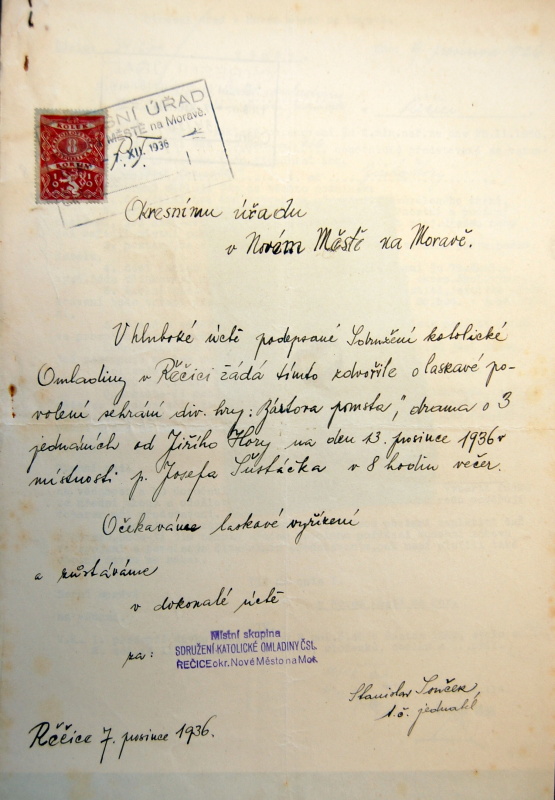 KOLEK
8
KORUN
ÚŘAD
MĚSTĚ na Moravě.
7. XII. 1936
Okresnímu úřadu
v Novém Městě na Moravě.
V hluboké úctě podepsané Sdružení katolické
Omladiny v Řečici žádá tímto zdvořile o laskavé po-
volení sehrání div. hry: "Bártova pomsta", drama o 3
jednáních od Jiřího Hory na den 13. prosince 1936 v
místnosti p. Josefa Šustáčka v 8 hodin večer.
Očekáváme laskavé vyřízení
a zůstáváme
v dokonalé úctě
za:
Místní skupina
SDRUŽENÍ KATOLICKÉ OMLADINY ČSL.
ŘEČICE okr. Nové Město na Mor.
Stanislav Souček,
t.č. jednatel
Řečice 7. prosince 1936.